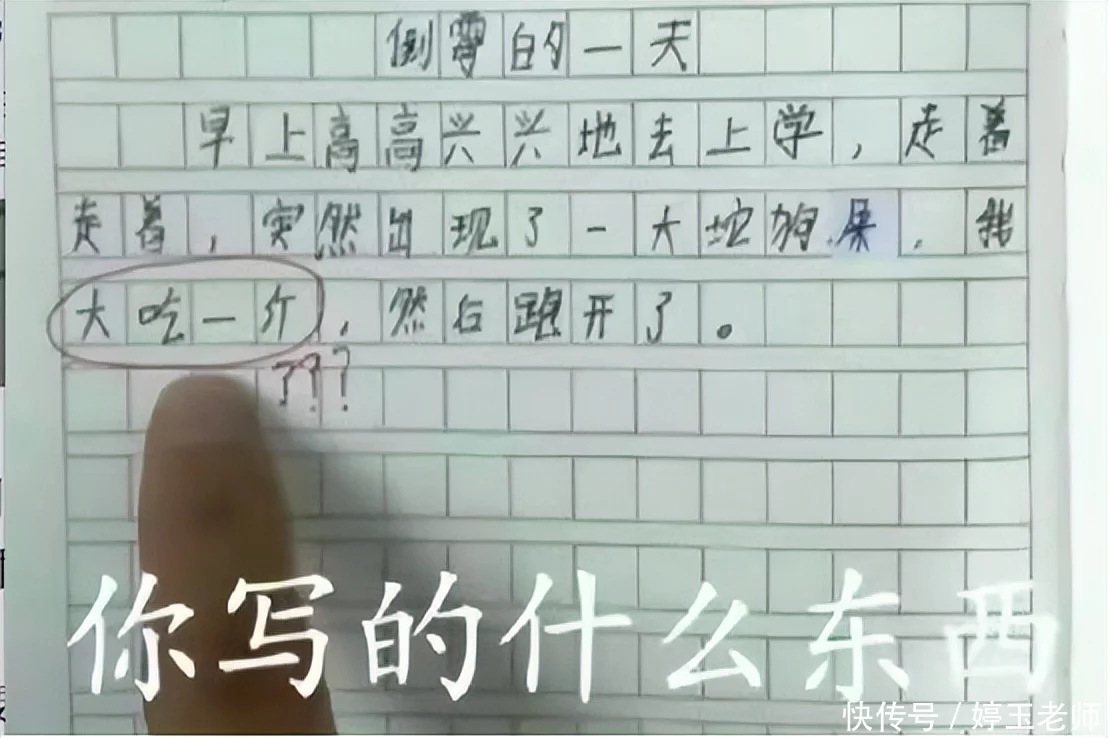 倒霉的一天
早上高高兴兴地去上学，走着
走着，突然出现了一大坨狗屎，我
大吃一斤，然后跑开了。
???
你写的什么东西
快传号/婷玉老师